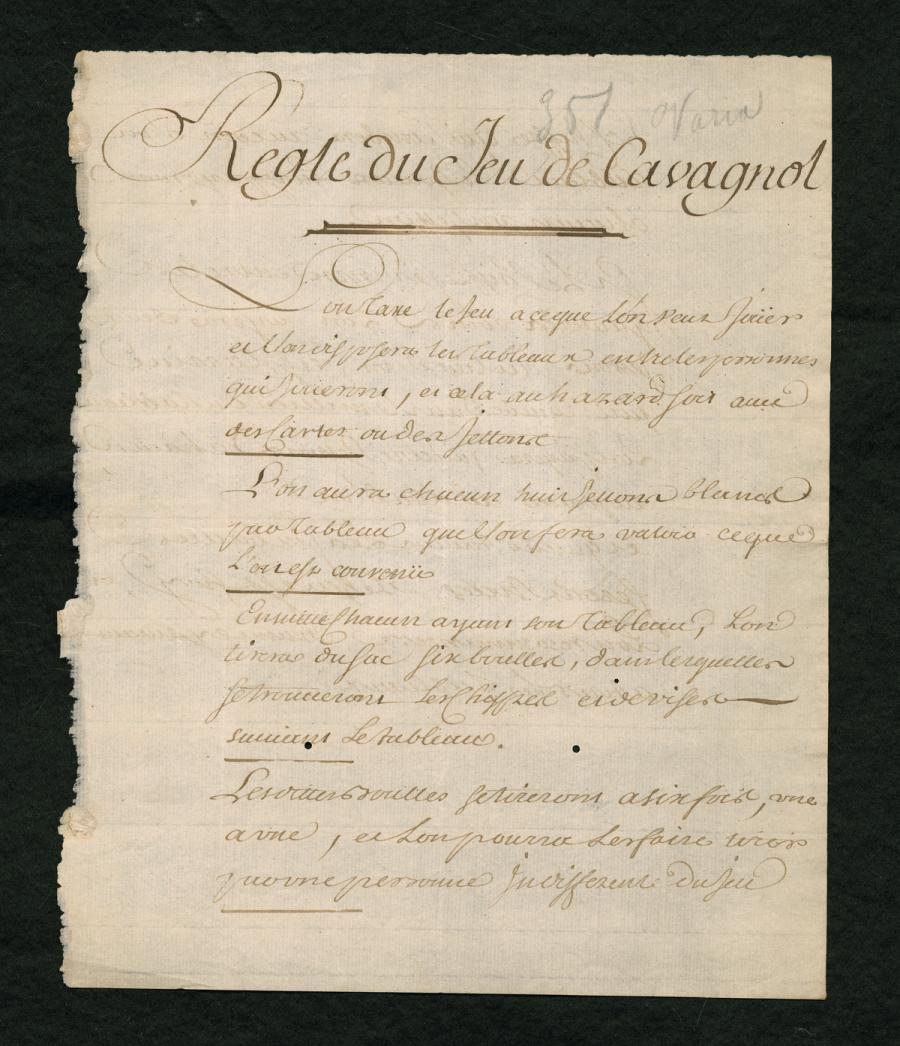 351 Varia
Regle du Jeu de Cavagnol
L'on Taxe le Jeu a ce que L'on veux Joüer
et L'on disposera les Tableaux entre les personnes
qui Joüeront, et cela au hazard soit avec
des Cartes ou des Jettons
L'on aura chacun huit Jettons blancs
par Tableau que L'on fera valoir ce que
L'on est convenü
Ensuitte Chacun ayant son Tableau, L'on
tirera du sac six boulles, dans lesquelles
se trouveront Les Chiffres et devises
suivant Le tableau.
Les boulles se tireront a six fois, une
a une, et L'on pourra Les faire tirer
par une personne Indifferente du Jeu